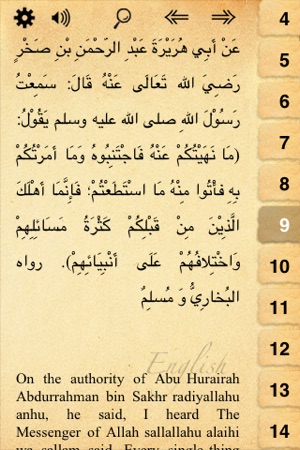 عَنْ أَبِي هُرَيْرَةَ عَبْدِ الرَّحْمَنِ بْنِ صَخْرٍ
رَضِيَ اللهُ تَعَالَى عَنْهُ قَالَ: سَمِعْتُ
رَسُوْلَ اللهِ صلى الله عليه وسلم يَقُوْلُ:
(مَا نَهَيْتُكُمْ عَنْهُ فَاجْتَنِبُوهُ وَمَا أَمَرْتُكُمْ
بِهِ فَأْتُوا مِنْهُ مَا اسْتَطَعْتُمْ؛ فَإِنَّمَا أَهْلَكَ
الَّذِيْنَ مِنْ قَبْلِكُمْ كَثْرَةُ مَسَائِلِهِمْ
وَاخْتِلَافُهُمْ عَلَى أَنْبِيَائِهِمْ). رواه
البُخَارِيُّ وَ مُسلِمٌ
English
On the authority of Abu Hurairah
Abdurrahman bin Sakhr radiyallahu
anhu, he said, I heard The
Messenger of Allah sallallahu alaihi
wa sallam said, Every single thing
4
5
6
7
8
9
10
11
12
13
14